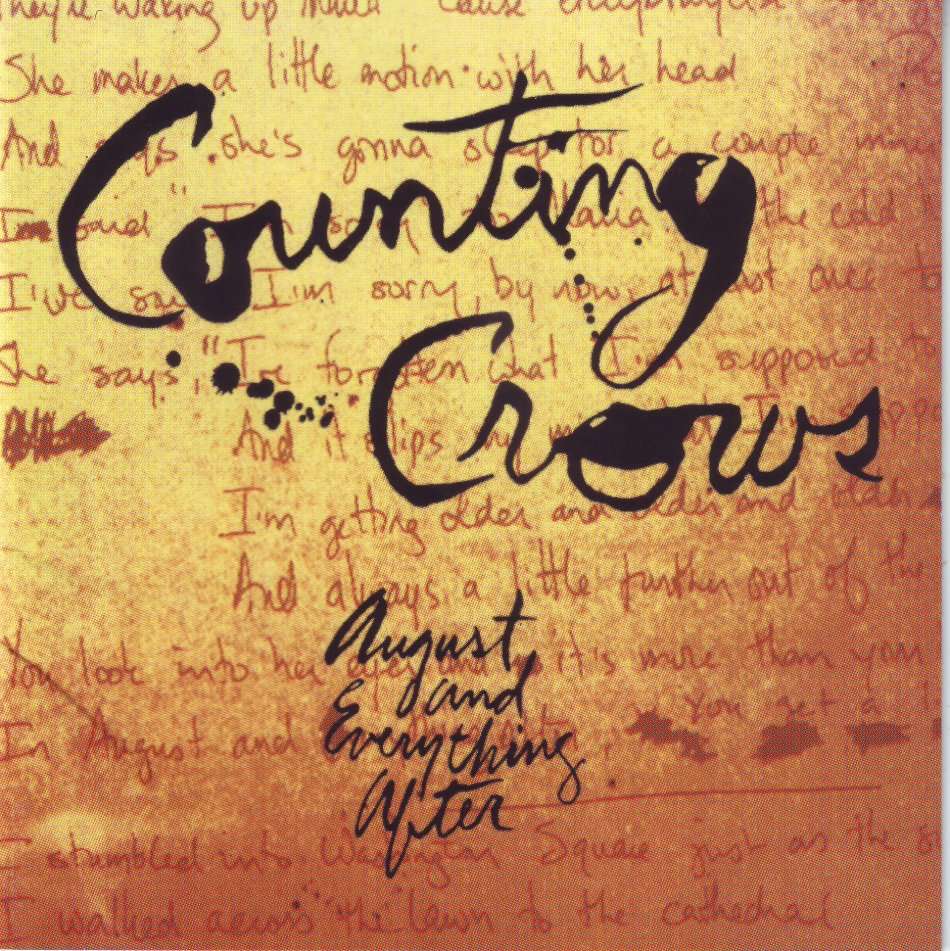 They're waking up Maria 'cause everybody else
She makes a little motion with her head
And says she's gonna sleep for a couple
Counting
I'm said "I'm sorry" to Maria the cold
I've say I'm sorry, by now, at least once to
Crows
She says, "I've forgotten what I'm supposed to
And it slips my mind
I'm getting older and older and older
And always a little further out of the
August
You look into her eyes and it's more than your
and
You get a
Everything
In August and
After
I stumbled into Washington Square just as the
I walked across the lawn to the cathedral